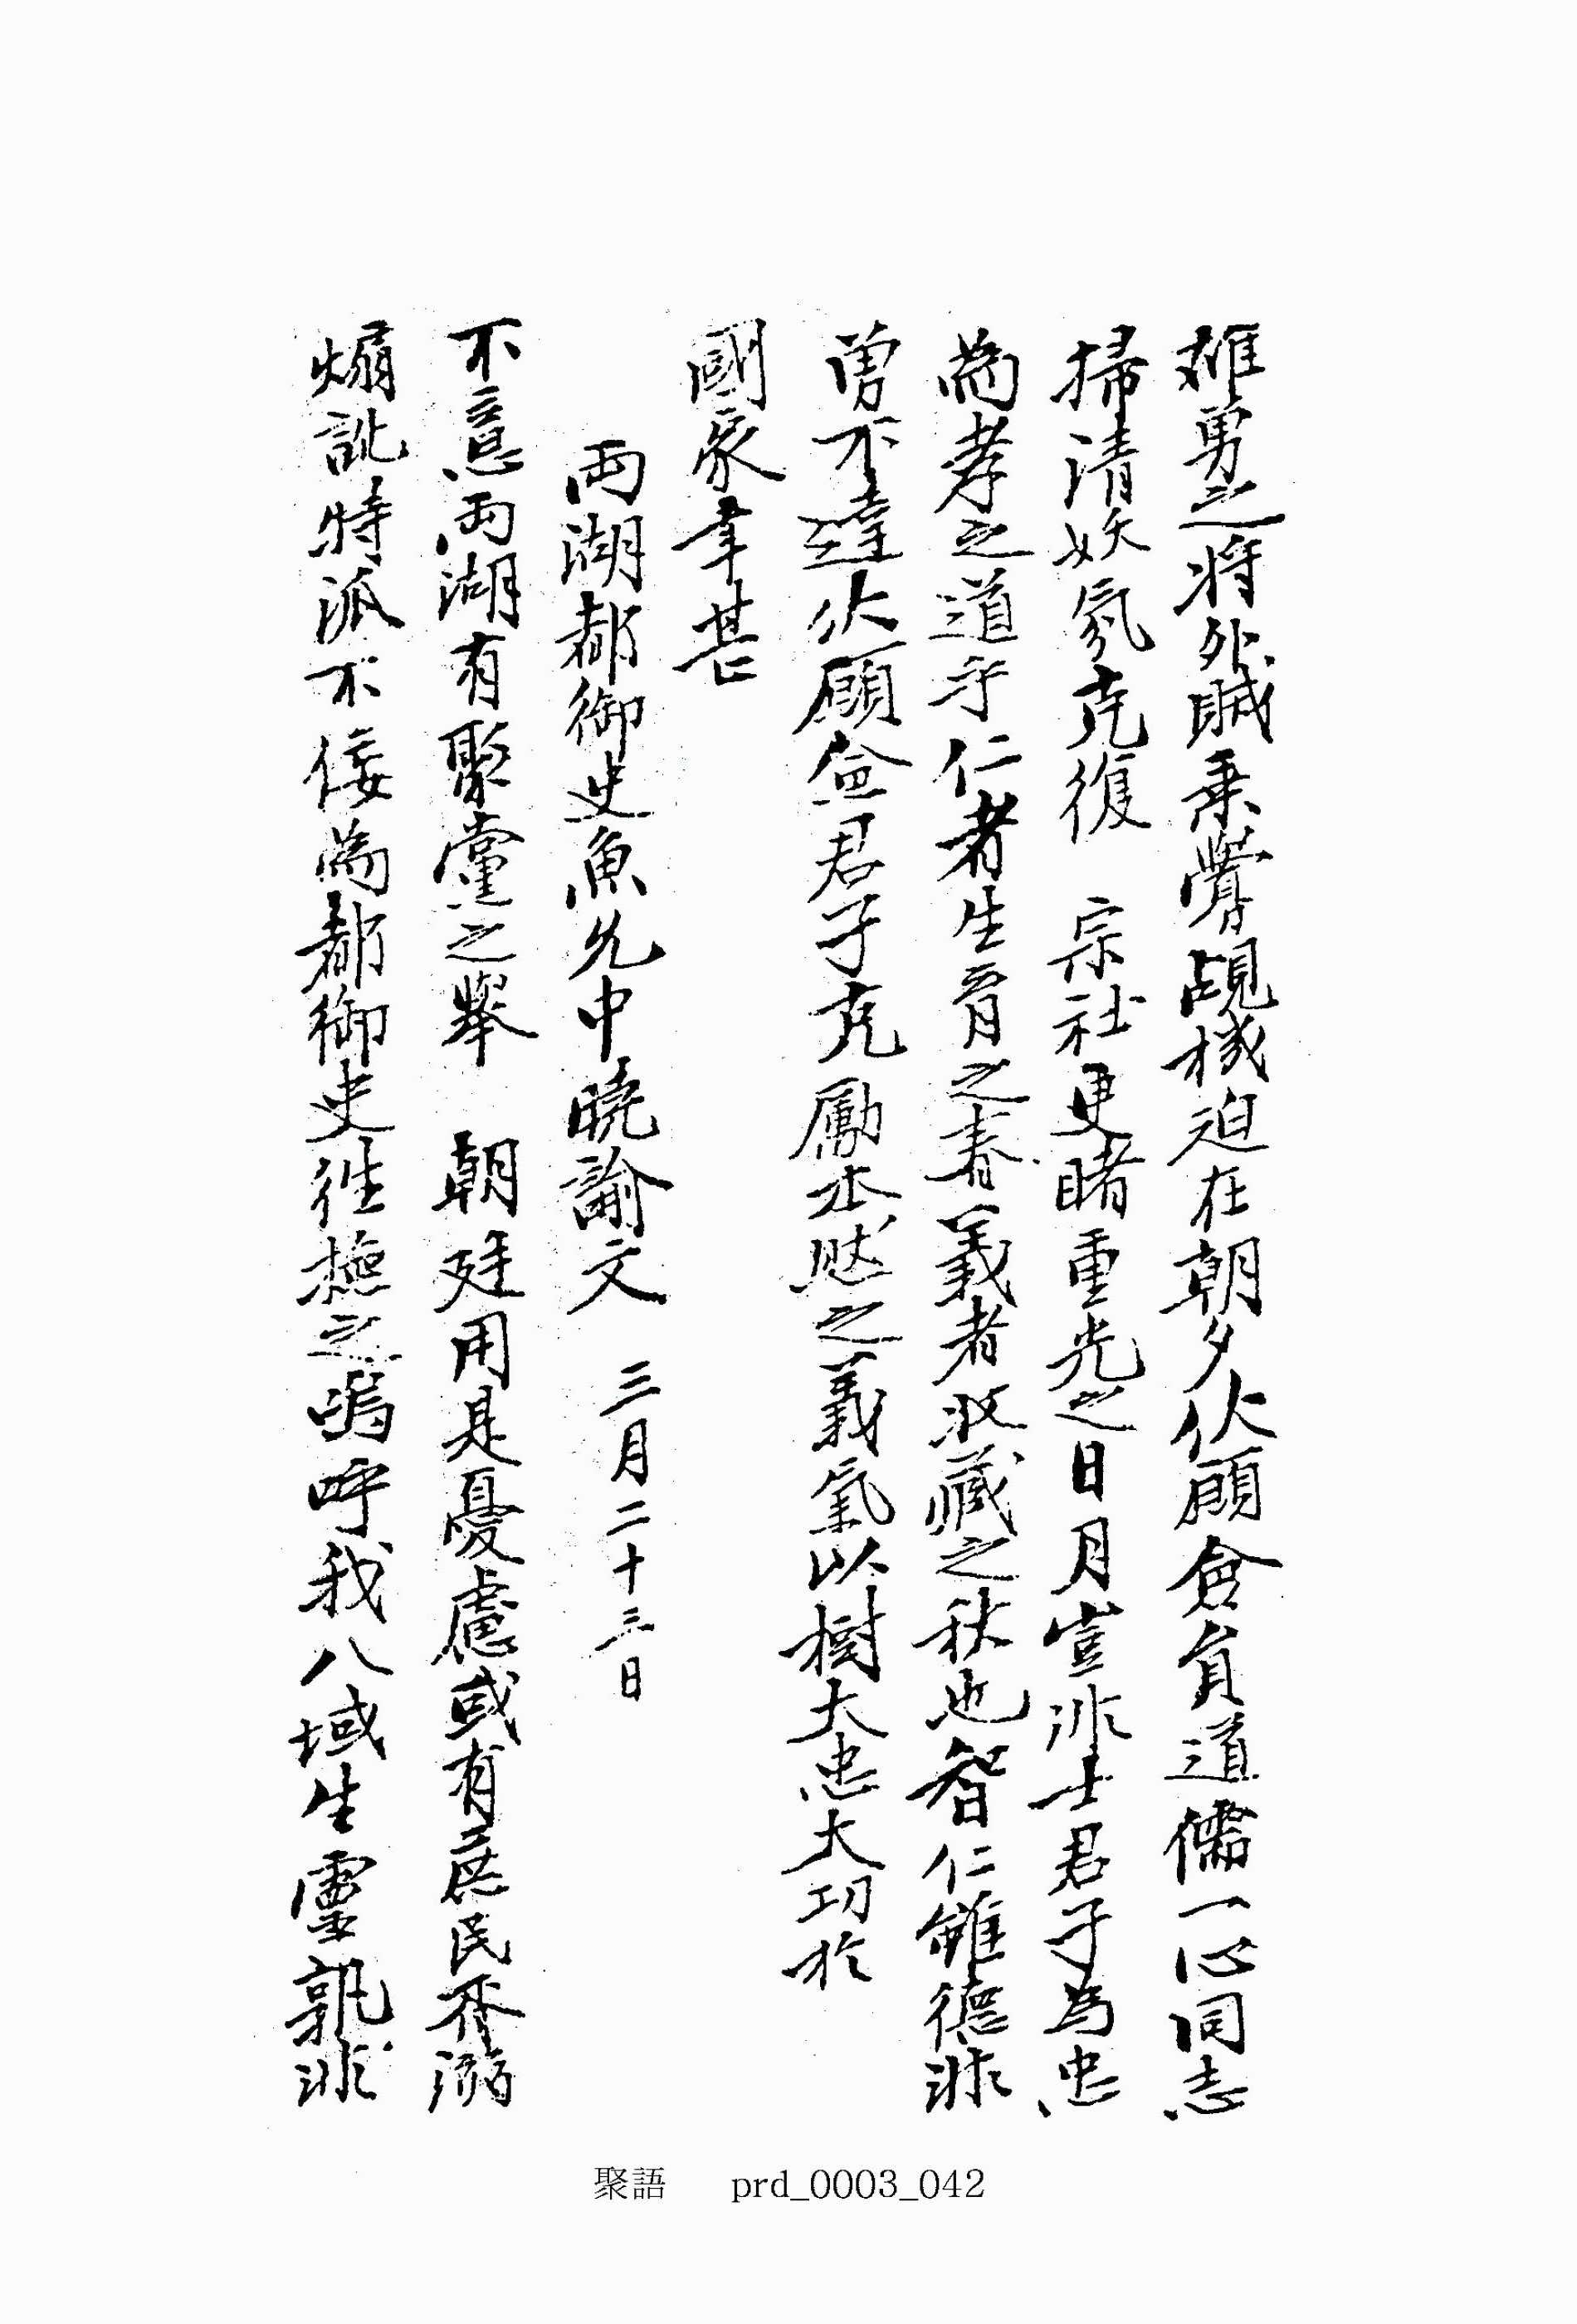 雄勇之將外賊乘釁覘機迫在朝夕伏願僉員道儒一心同志
掃淸妖氛克復 宗社更睹重光之日月豈非士君子爲忠
爲孝之道乎仁者生育之春義者收藏之秋也智仁雖德非
勇不達伏願僉君子克勵丕然之義氣以樹大忠大功於
國家幸甚
両湖都御史魚允中曉諭文 三月二十三日
不意両湖有聚黨之擧 朝廷用是憂慮或有庶民胥溺
煽訛特派不佞爲都御史徃撫之嗚呼我八域生靈孰非
聚語 prd_0003_042